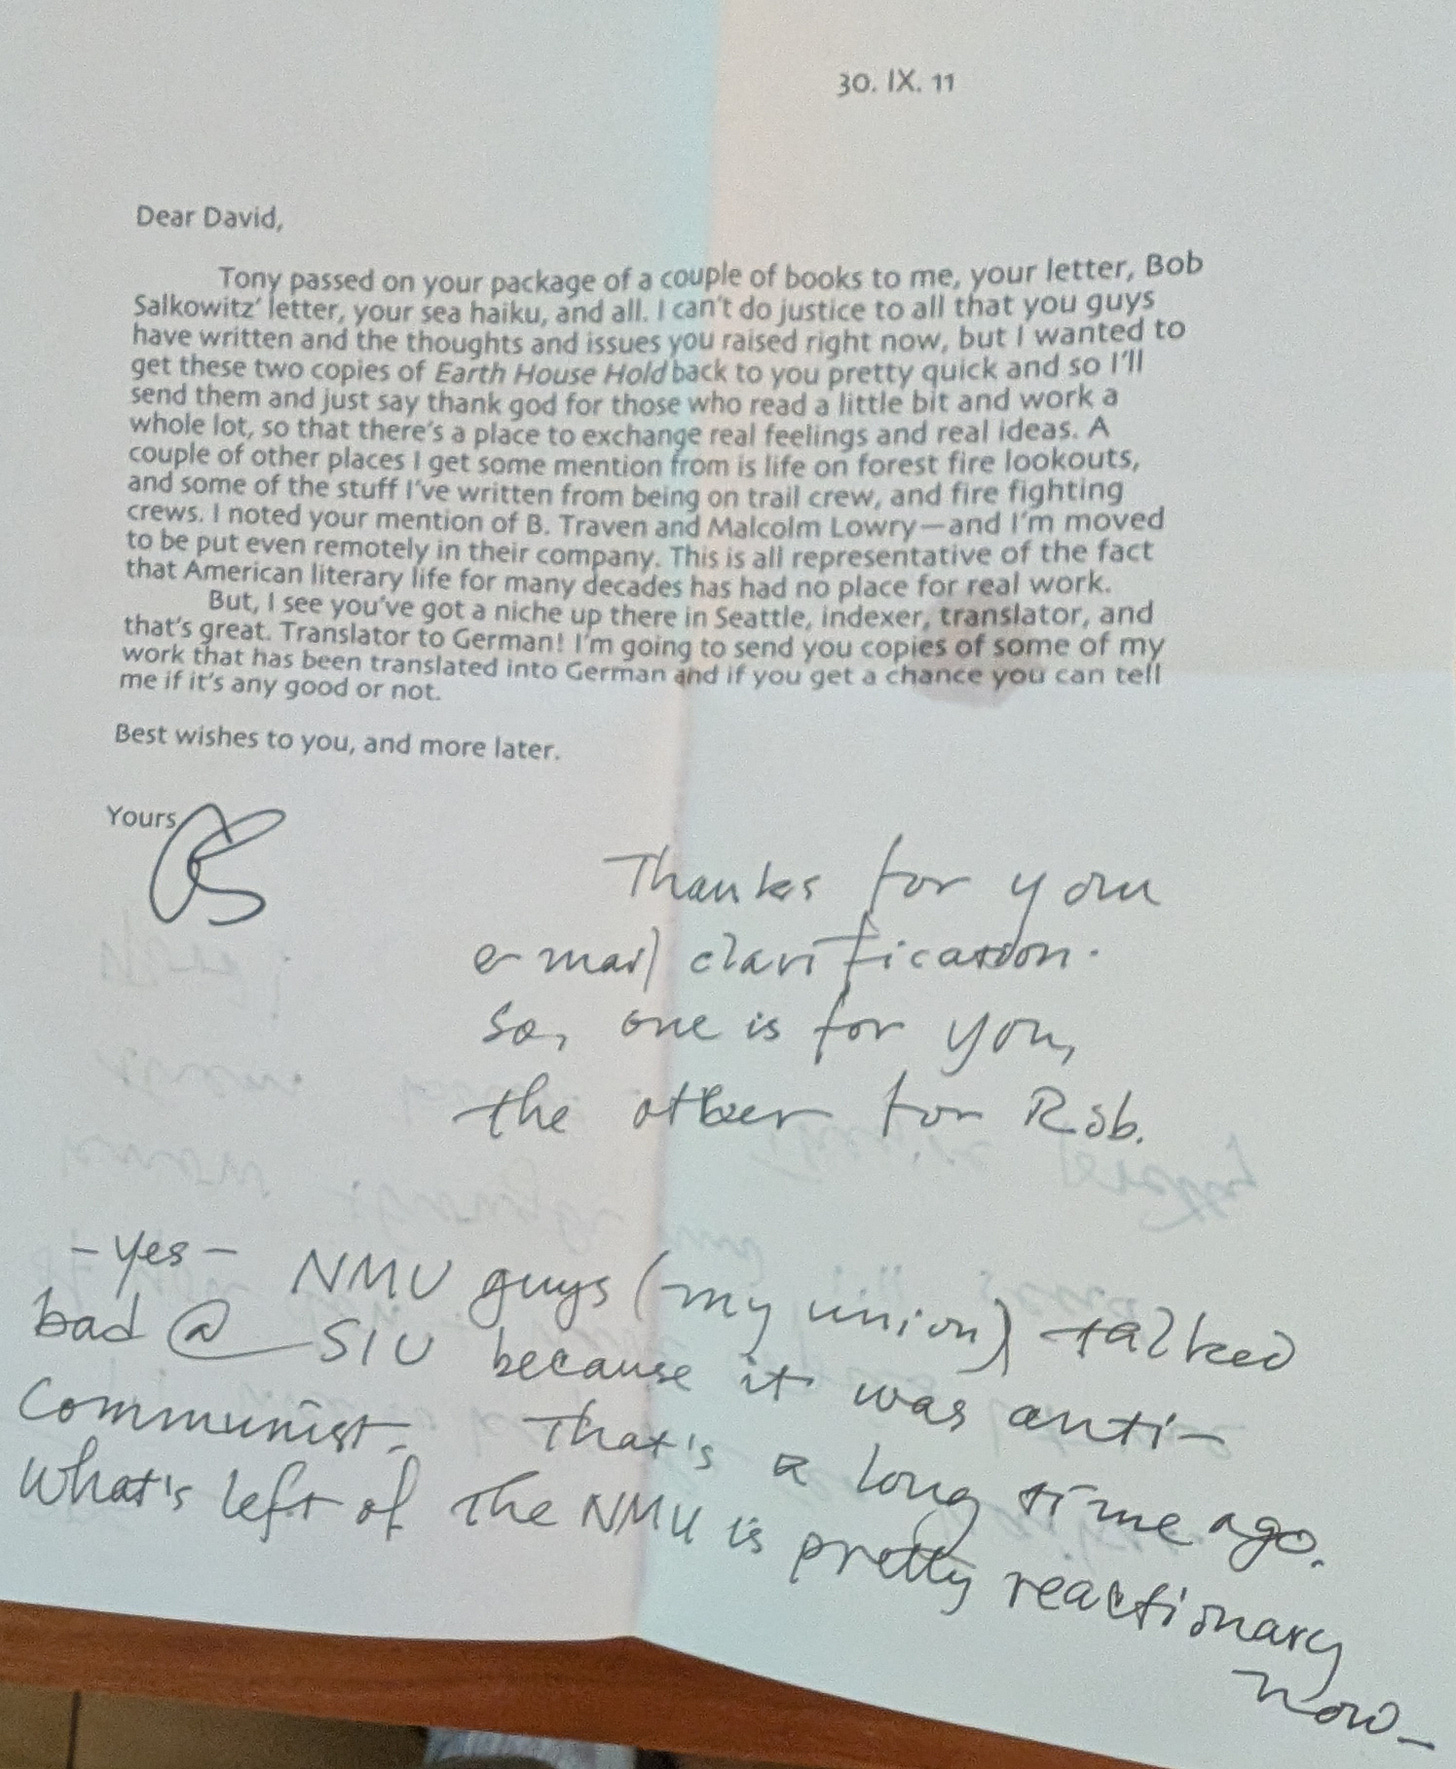 30. IX. 11
Dear David,
Tony passed on your package of a couple of books to me, your letter, Bob
Salkowitz' letter, your sea haiku, and all. I can't do justice to all that you guys
have written and the thoughts and issues you raised right now, but I wanted to
get these two copies of Earth House Hold back to you pretty quick and so I'll
send them and just say thank god for those who read a little bit and work a
whole lot, so that there's a place to exchange real feelings and real ideas. A
couple of other places I get some mention from is life on forest fire lookouts,
and some of the stuff I've written from being on trail crew, and fire fighting
crews. I noted your mention of B. Traven and Malcolm Lowry—and I'm moved
to be put even remotely in their company. This is all representative of the fact
that American literary life for many decades has had no place for real work.
But, I see you've got a niche up there in Seattle, indexer, translator, and
that's great. Translator to German! I'm going to send you copies of some of my
work that has been translated into German and if you get a chance you can tell
me if it's any good or not.
Best wishes to you, and more later.
Yours
Thanks for your
e-mail clarification.
So, one is for you,
the other for Rob.
- Yes - NMU guys (my union) talked
bad @ SIU because it was anti-
Communist. That's a long time ago.
What's left of the NMU is pretty reactionary
now -